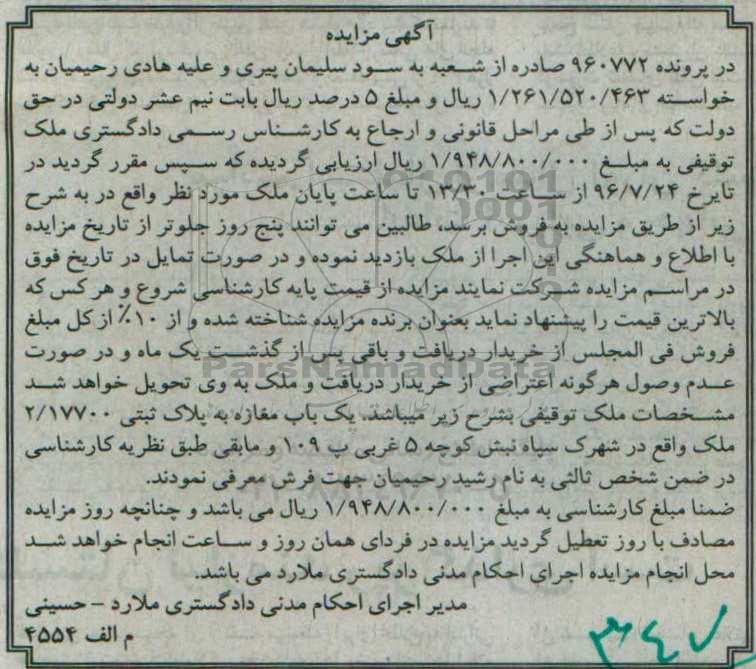 آگهی مزایده
در پرونده ۹۶۰۷۷۲ صادره از شعبه به سود سلیمان پیری و علیه هادی رحیمیان به
خواسته ۱/۲۶۱/۵۲۰/۴۶۳ ریال و مبلغ ۵ درصد ریال بابت نیم عشر دولتی در حق
دولت که پس از طی مراحل قانونی و ارجاع به کارشناس رسمی دادگستری ملک
توقیفی به مبلغ ۱/۹۴۸/۸۰۰/۰۰۰ ریال ارزیابی گردیده که سپس مقرر گردید در
تایرخ ۹۶/۷/۲۴ از ساعت ۱۳/۳۰ تا ساعت پایان ملک مورد نظر واقع در به شرح
زیر از طریق مزایده به فروش برسد، طالبین می توانند پنج روز جلوتر از تاریخ مزایده
با اطلاع و هماهنگی این اجرا از ملک بازدید نموده و در صورت تمایل در تاریخ فوق
در مراسم مزایده شرکت نمایند مزایده از قیمت پایه کارشناسی شروع و هر کس که
بالاترین قیمت را پیشنهاد نماید بعنوان برنده مزایده شناخته شده و از ۱۰٪ از کل مبلغ
فروش فی المجلس از خریدار دریافت و باقی پس از گذشت یک ماه و در صورت
عدم وصول هرگونه اعتراضی از خریدار دریافت و ملک به وی تحویل خواهد شد
مشخصات ملک توقیفی بشرح زیر میباشد. یک باب مغازه به پلاک ثبتی ۲/۱۷۷۰۰
ملک واقع در شهرک سپاه نبش کوچه ۵ غربی پ ۱۰۹ و مابقی طبق نظریه کارشناسی
در ضمن شخص ثالثی به نام رشید رحیمیان جهت فرش معرفی نمودند.
ضمنا مبلغ کارشناسی به مبلغ ۱/۹۴۸/۸۰۰/۰۰۰ ریال می باشد و چنانچه روز مزایده
مصادف با روز تعطیل گردید مزایده در فردای همان روز و ساعت انجام خواهد شد
محل انجام مزایده اجرای احکام مدنی دادگستری ملارد می باشد.
مدیر اجرای احکام مدنی دادگستری ملارد - حسینی
م الف ۴۵۵۴
۳۴۷
ParsNamadData